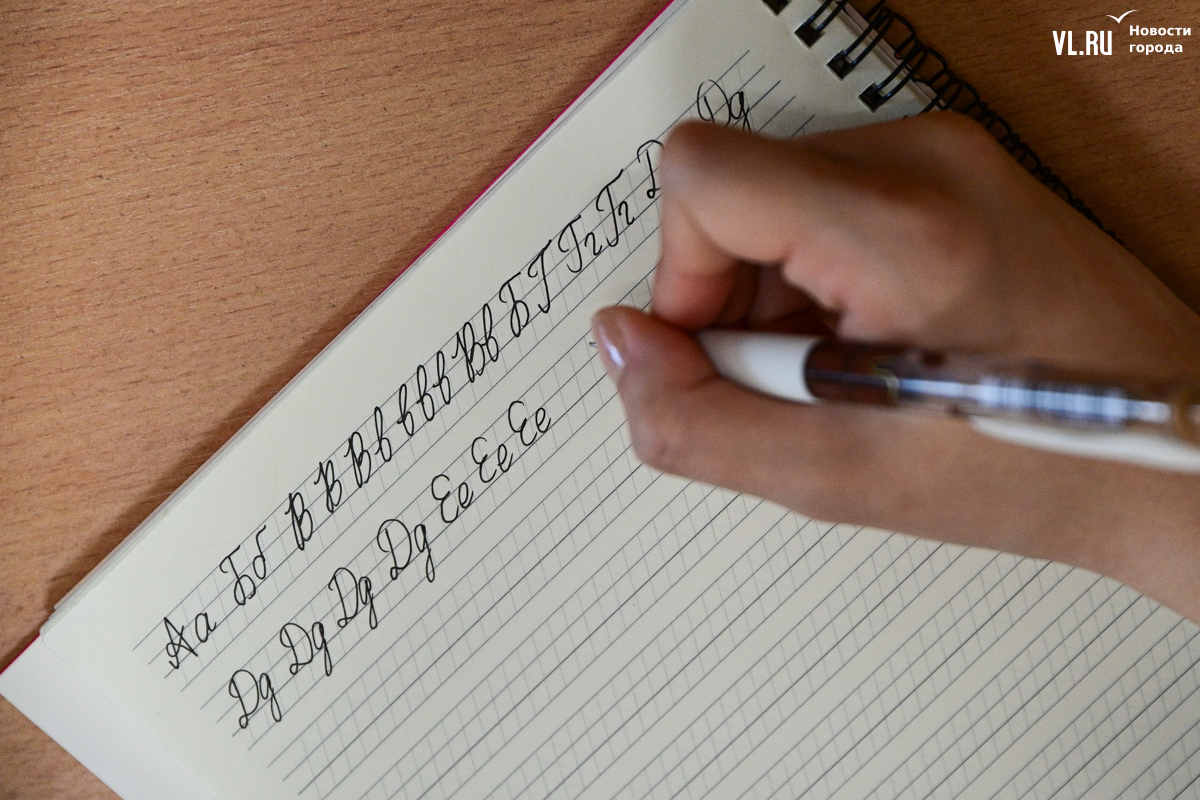 VL.RU Новости
города
Аа Бб В В Вв в в в Вв Б Г Гг Гг Д Дд
Дд Дд Дд Дд Ее Ее Ее